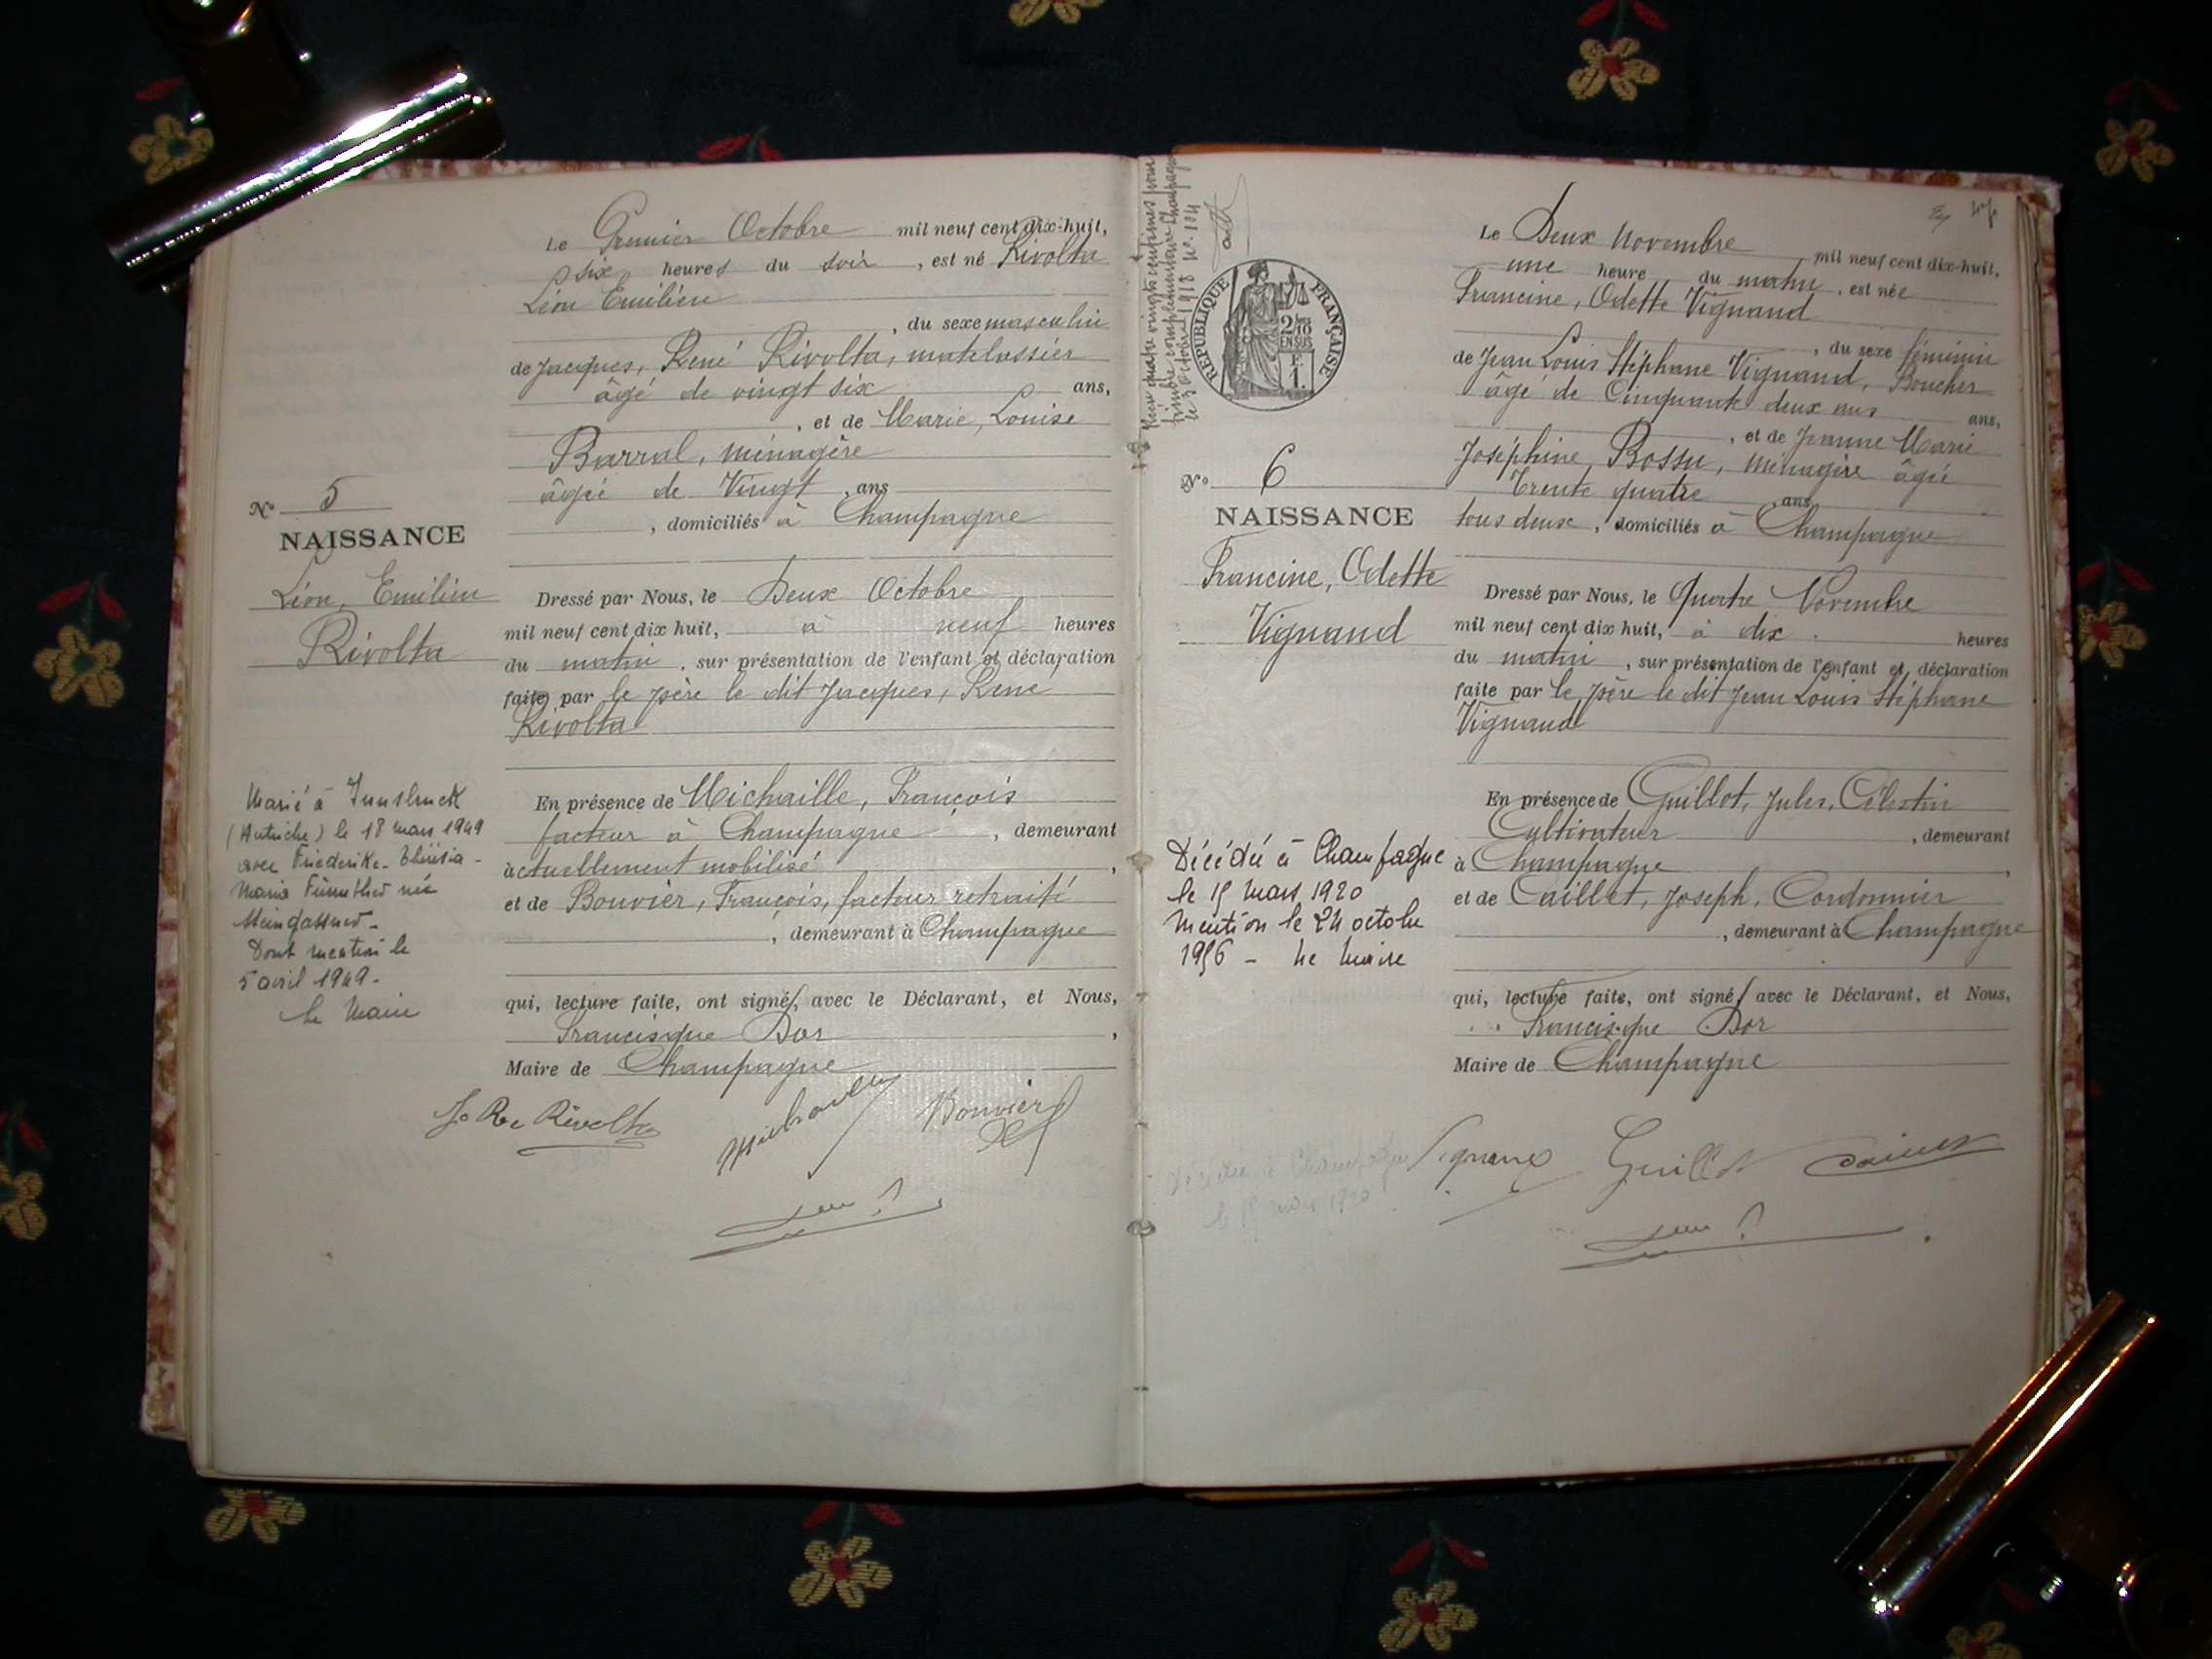 Le Premier Octobre mil neuf cent dix-huit,
six heures du soir, est né Rivolta
Léon Emilien
, du sexe masculin
de Jacques, René Rivolta, matelassier
âgé de vingt six ans,
, et de Marie, Louise
Barral, ménagère
âgée de Vingt, ans
, domiciliés à Champagne
N° 5
NAISSANCE
Léon, Emilien
Rivolta
Dressé par Nous, le Deux Octobre
mil neuf cent dix huit, à neuf heures
du matin, sur présentation de l'enfant et déclaration
faite par le père le dit Jacques, René
Rivolta
En présence de Michaille, François
facteur à Champagne, demeurant
actuellement mobilisé,
et de Bouvier, François, facteur retraité
, demeurant à Champagne
qui, lecture faite, ont signé, avec le Déclarant, et Nous,
Francisque Dor,
Maire de Champagne
Marié à Innsbruck
(Autriche) le 18 mars 1949
avec Friederike Thérésia
Maria
Dont mention le
5 avril 1949.
Le Maire
Rivolta
Bouvier
timbre complémentaire Champagne
le 3 Octobre 1918 N° 104
RÉPUBLIQUE FRANÇAISE
2/10
EN SUS
F.
1.
Le Deux Novembre mil neuf cent dix-huit,
une heure du matin, est née
Francine, Odette Vignand
, du sexe féminin
de Jean Louis Stéphane Vignand, Boucher
âgé de Cinquante deux ans ans,
, et de Jeanne Marie
Joséphine, Bossu, ménagère âgée
Trente quatre, ans
tous deux, domiciliés à Champagne
N° 6
NAISSANCE
Francine, Odette
Vignand
Dressé par Nous, le Quatre Novembre
mil neuf cent dix huit, à dix heures
du matin, sur présentation de l'enfant et déclaration
faite par le père le dit Jean Louis Stéphane
Vignand
En présence de Guillot, Jules, Célestin
Cultivateur, demeurant
à Champagne,
et de Caillet, Joseph, Cordonnier
, demeurant à Champagne
qui, lecture faite, ont signé avec le Déclarant, et Nous,
Francisque Dor
Maire de Champagne
Décédée à Champagne
le 15 mars 1920
Mention le 24 octobre
1956 - Le Maire
Vignand
Guillot
Caillet
Décédée à Champagne
le 15 mars 1920